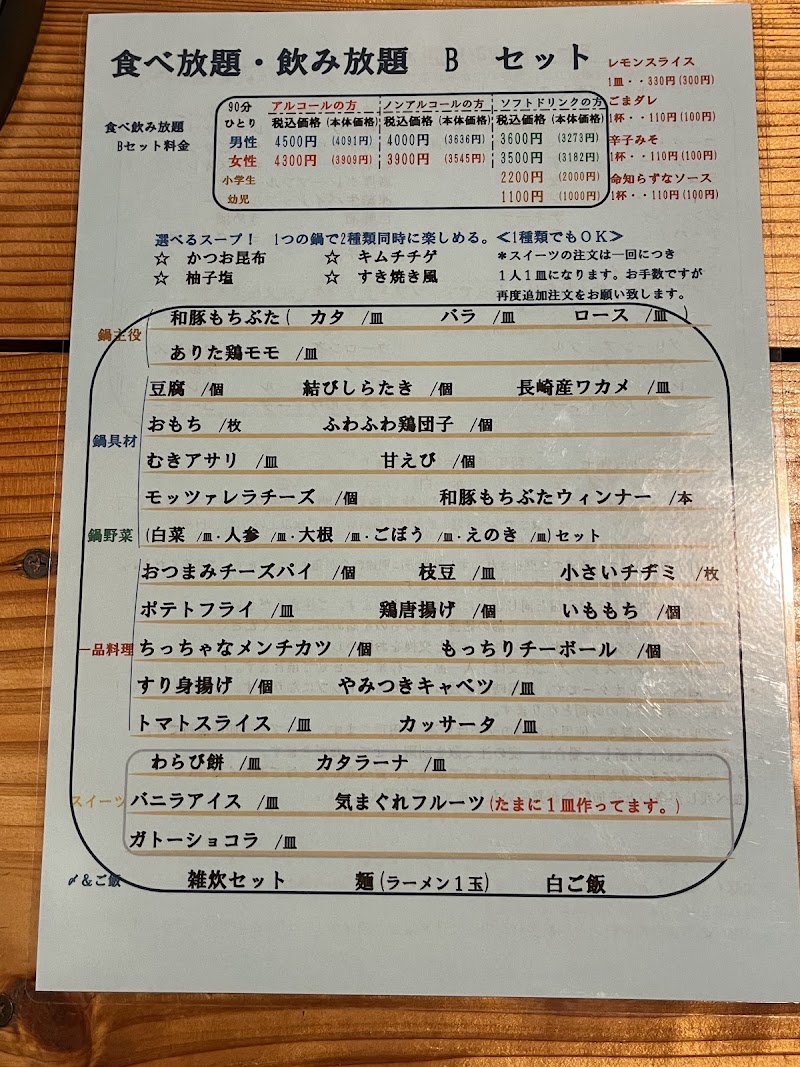 食べ放題・飲み放題 B セット
レモンスライス
1皿・・330円(300円)
ごまダレ
1杯・・110円(100円)
辛子みそ
1杯・・110円(100円)
命知らずなソース
1杯・・110円(100円)
食べ飲み放題
Bセット料金
90分 アルコールの方 ノンアルコールの方 ソフトドリンクの方
ひとり 税込価格(本体価格) 税込価格(本体価格) 税込価格(本体価格)
男性 4500円 (4091円) 4000円 (3636円) 3600円 (3273円)
女性 4300円 (3909円) 3900円 (3545円) 3500円 (3182円)
小学生 2200円 (2000円)
幼児 1100円 (1000円)
選べるスープ! 1つの鍋で2種類同時に楽しめる。≪1種類でもOK≫
☆ かつお昆布 ☆ キムチチゲ
☆ 柚子塩 ☆ すき焼き風
*スイーツの注文は一回につき
1人1皿になります。お手数ですが
再度追加注文をお願い致します。
鍋主役
和豚もちぶた( カタ /皿 バラ /皿 ロース /皿 )
ありた鶏モモ /皿
鍋具材
豆腐 /個 結びしらたき /個 長崎産ワカメ /皿
おもち /枚 ふわふわ鶏団子 /個
むきアサリ /皿 甘えび /個
モッツァレラチーズ /個 和豚もちぶたウィンナー /本
鍋野菜 (白菜 /皿・人参 /皿・大根 /皿・ごぼう /皿・えのき /皿)セット
一品料理
おつまみチーズパイ /個 枝豆 /皿 小さいチヂミ /枚
ポテトフライ /皿 鶏唐揚げ /個 いももち /個
ちっちゃなメンチカツ /個 もっちりチーボール /個
すり身揚げ /個 やみつきキャベツ /皿
トマトスライス /皿 カッサータ /皿
スイーツ
わらび餅 /皿 カタラーナ /皿
バニラアイス /皿 気まぐれフルーツ(たまに1皿作ってます。)
ガトーショコラ /皿
〆&ご飯 雑炊セット 麺(ラーメン1玉) 白ご飯